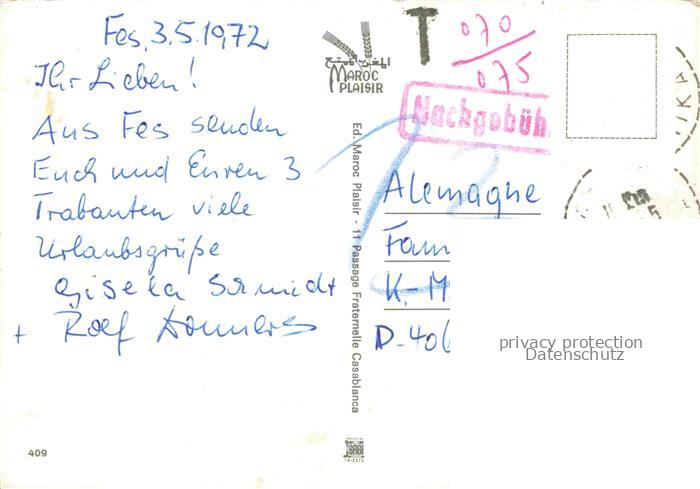 Fes, 3.5.1972
Ihr Lieben!
Aus Fes senden
Euch und Euren 3
Trabanten viele
Urlaubsgrüße
Gisela Schmidt
+ Rolf
409
MAROC
PLAISIR
Ed. Maroc Plaisir - 11 Passage Fraternelle Casablanca
TRIESTE
T
070
075
Nachgebüh
Alemagne
Fam
K.-M.
D-406
privacy protection
Datenschutz